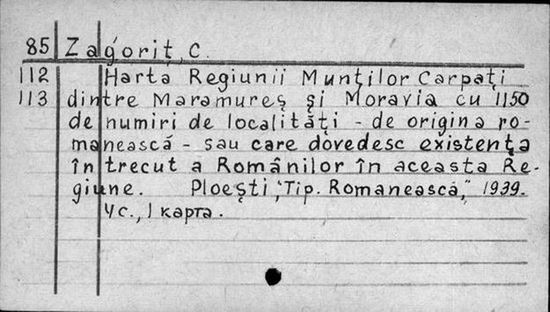 85 Zagoriț, C.
112 Harta Regiunii Munților Carpați
113 dintre Maramureș și Moravia cu 1150
de numiri de localități - de origina ro-
manească - sau care dovedesc existența
în trecut a Românilor în aceasta Re-
giune. Ploești, "Tip. Romanească," 1939.
4с., 1 карта.